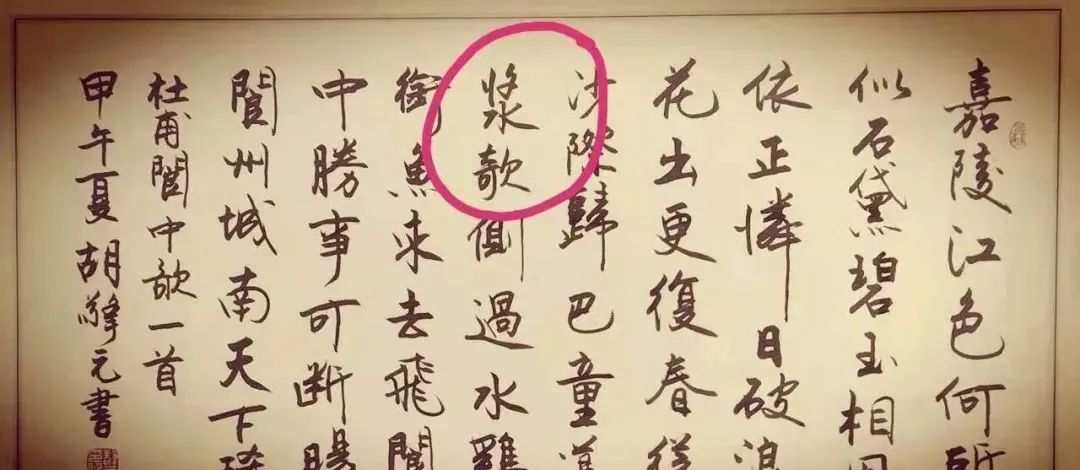 嘉陵江色何所
似石黛碧玉相因
依正憐日破浪
花出更復春從
沙際歸巴童蕩
漿欹側過水雞
銜魚來去飛閬
中勝事可斷腸
閬州城南天下稀
杜甫閬中歌一首
甲午夏胡元書